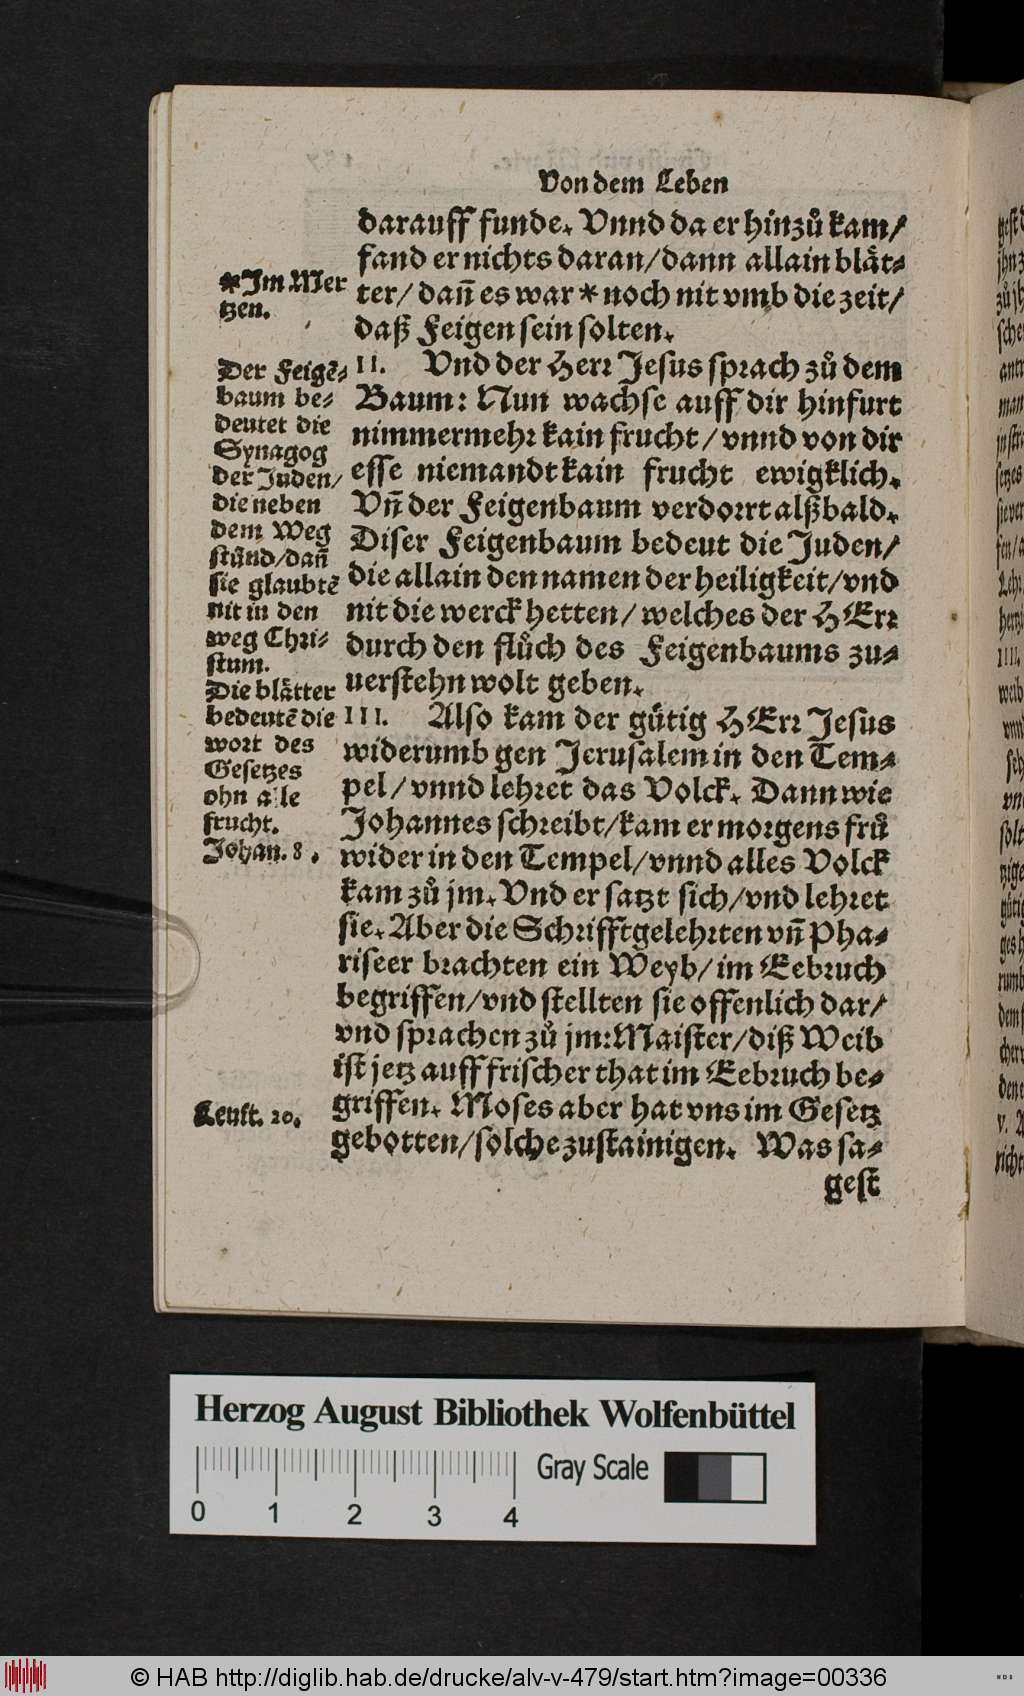 Von dem Leben
darauff funde. Vnnd da er hinzů kam/
fand er nichts daran/ dann allain blåt-
ter/ dañ es war * noch nit vmb die zeit/
daß Feigen sein solten.
II. Vnd der Herr Jesus sprach zů dem
Baum: Nun wachse auff dir hinfurt
nimmermehr kain frucht/ vnnd von dir
esse niemandt kain frucht ewigklich.
Vñ der Feigenbaum verdorrt alßbald.
Diser Feigenbaum bedeut die Juden/
die allain den namen der heiligkeit/ vnd
nit die werck hetten/ welches der HErr
durch den flůch des Feigenbaums zu-
uerstehn wolt geben.
III. Also kam der gütig HErr Jesus
widerumb gen Jerusalem in den Tem-
pel/ vnnd lehret das Volck. Dann wie
Johannes schreibt/ kam er morgens frů
wider in den Tempel/ vnnd alles Volck
kam zů jm. Vnd er satzt sich/ vnd lehret
sie. Aber die Schrifftgelehrten vñ Pha-
riseer brachten ein Weyb/ im Eebruch
begriffen/ vnd stellten sie offenlich dar/
vnd sprachen zů jm: Maister/ diß Weib
ist jetz auff frischer that im Eebruch be-
griffen. Moses aber hat vns im Gesetz
gebotten/ solche zustainigen. Was sa-
gest
*Im Mer
tzen.
Der Feigē-
baum be-
deutet die
Synagog
der Juden/
die neben
dem Weg
stünd/ dañ
sie glaubtē
nit in den
weg Chri-
stum.
Die blåtter
bedeutē die
wort des
Gesetzes
ohn alle
frucht.
Johan. 8.
Leuit. 20.
Herzog August Bibliothek Wolfenbüttel
0 1 2 3 4
Gray Scale
© HAB http://diglib.hab.de/drucke/alv-v-479/start.htm?image=00336